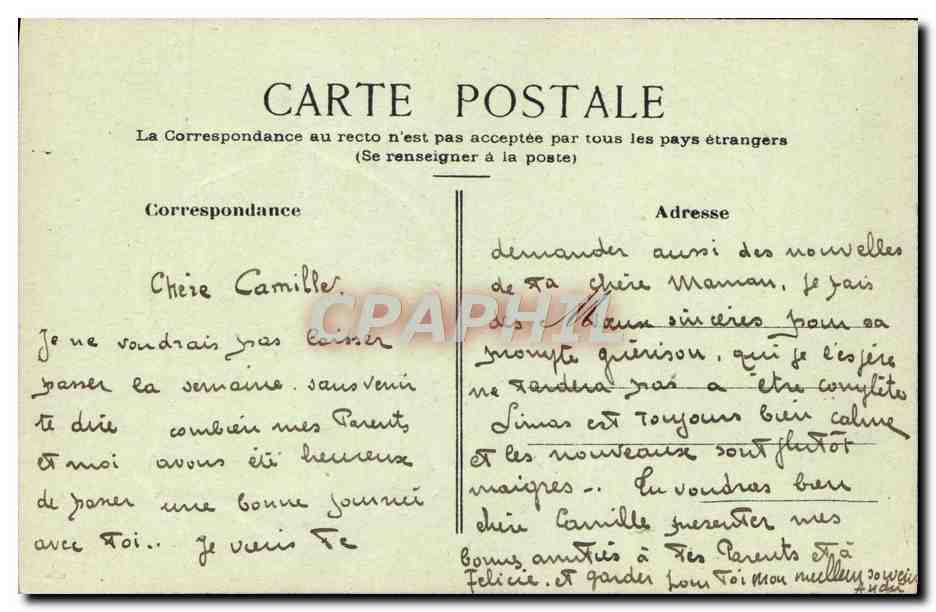 CARTE POSTALE
La Correspondance au recto n'est pas acceptée par tous les pays étrangers
(Se renseigner à la poste)
Correspondance
Chère Camille.
Je ne voudrais pas laisser
passer la semaine sans venir
te dire combien mes Parents
et moi avons été heureux
de passer une bonne journée
avec Toi.. Je viens te
Adresse
demander aussi des nouvelles
de ta chère Maman, Je fais
des vœux sincères pour sa
prompte guérison, qui je l'espère
ne tardera pas a être complète
est toujours bien calme
et les nouveaux sont plutôt
maigres -. Tu voudras bien
chère Camille présenter mes
bonnes amitiés à tes Parents et à
Félicie. et garder pour Toi mon meilleur souvenir
CPAPHIL